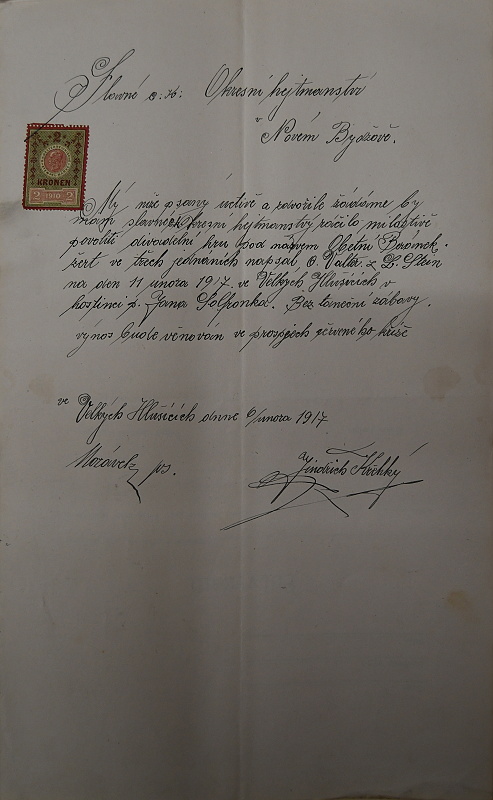 Slavné c. k. Okresní hejtmanství
v
Novém Bydžově.
2
KRONEN
2 1910 2
My, níže psaný uctivě a zdvořile žádáme by
nám slavné okresní hejtmanství ráčilo milostivě
povoliti divadelní hru pod názvem Obětní Beránek.
žert ve třech jednáních napsal
na den 11 února 1917. ve Velkých Hlušicích v
hostinci p. Jana Bez taneční zábavy.
výnos bude věnován ve prospěch červeného kříže
ve
Velkých Hlušicích dnne 6/února 1917
Morávek ps. Jindřich